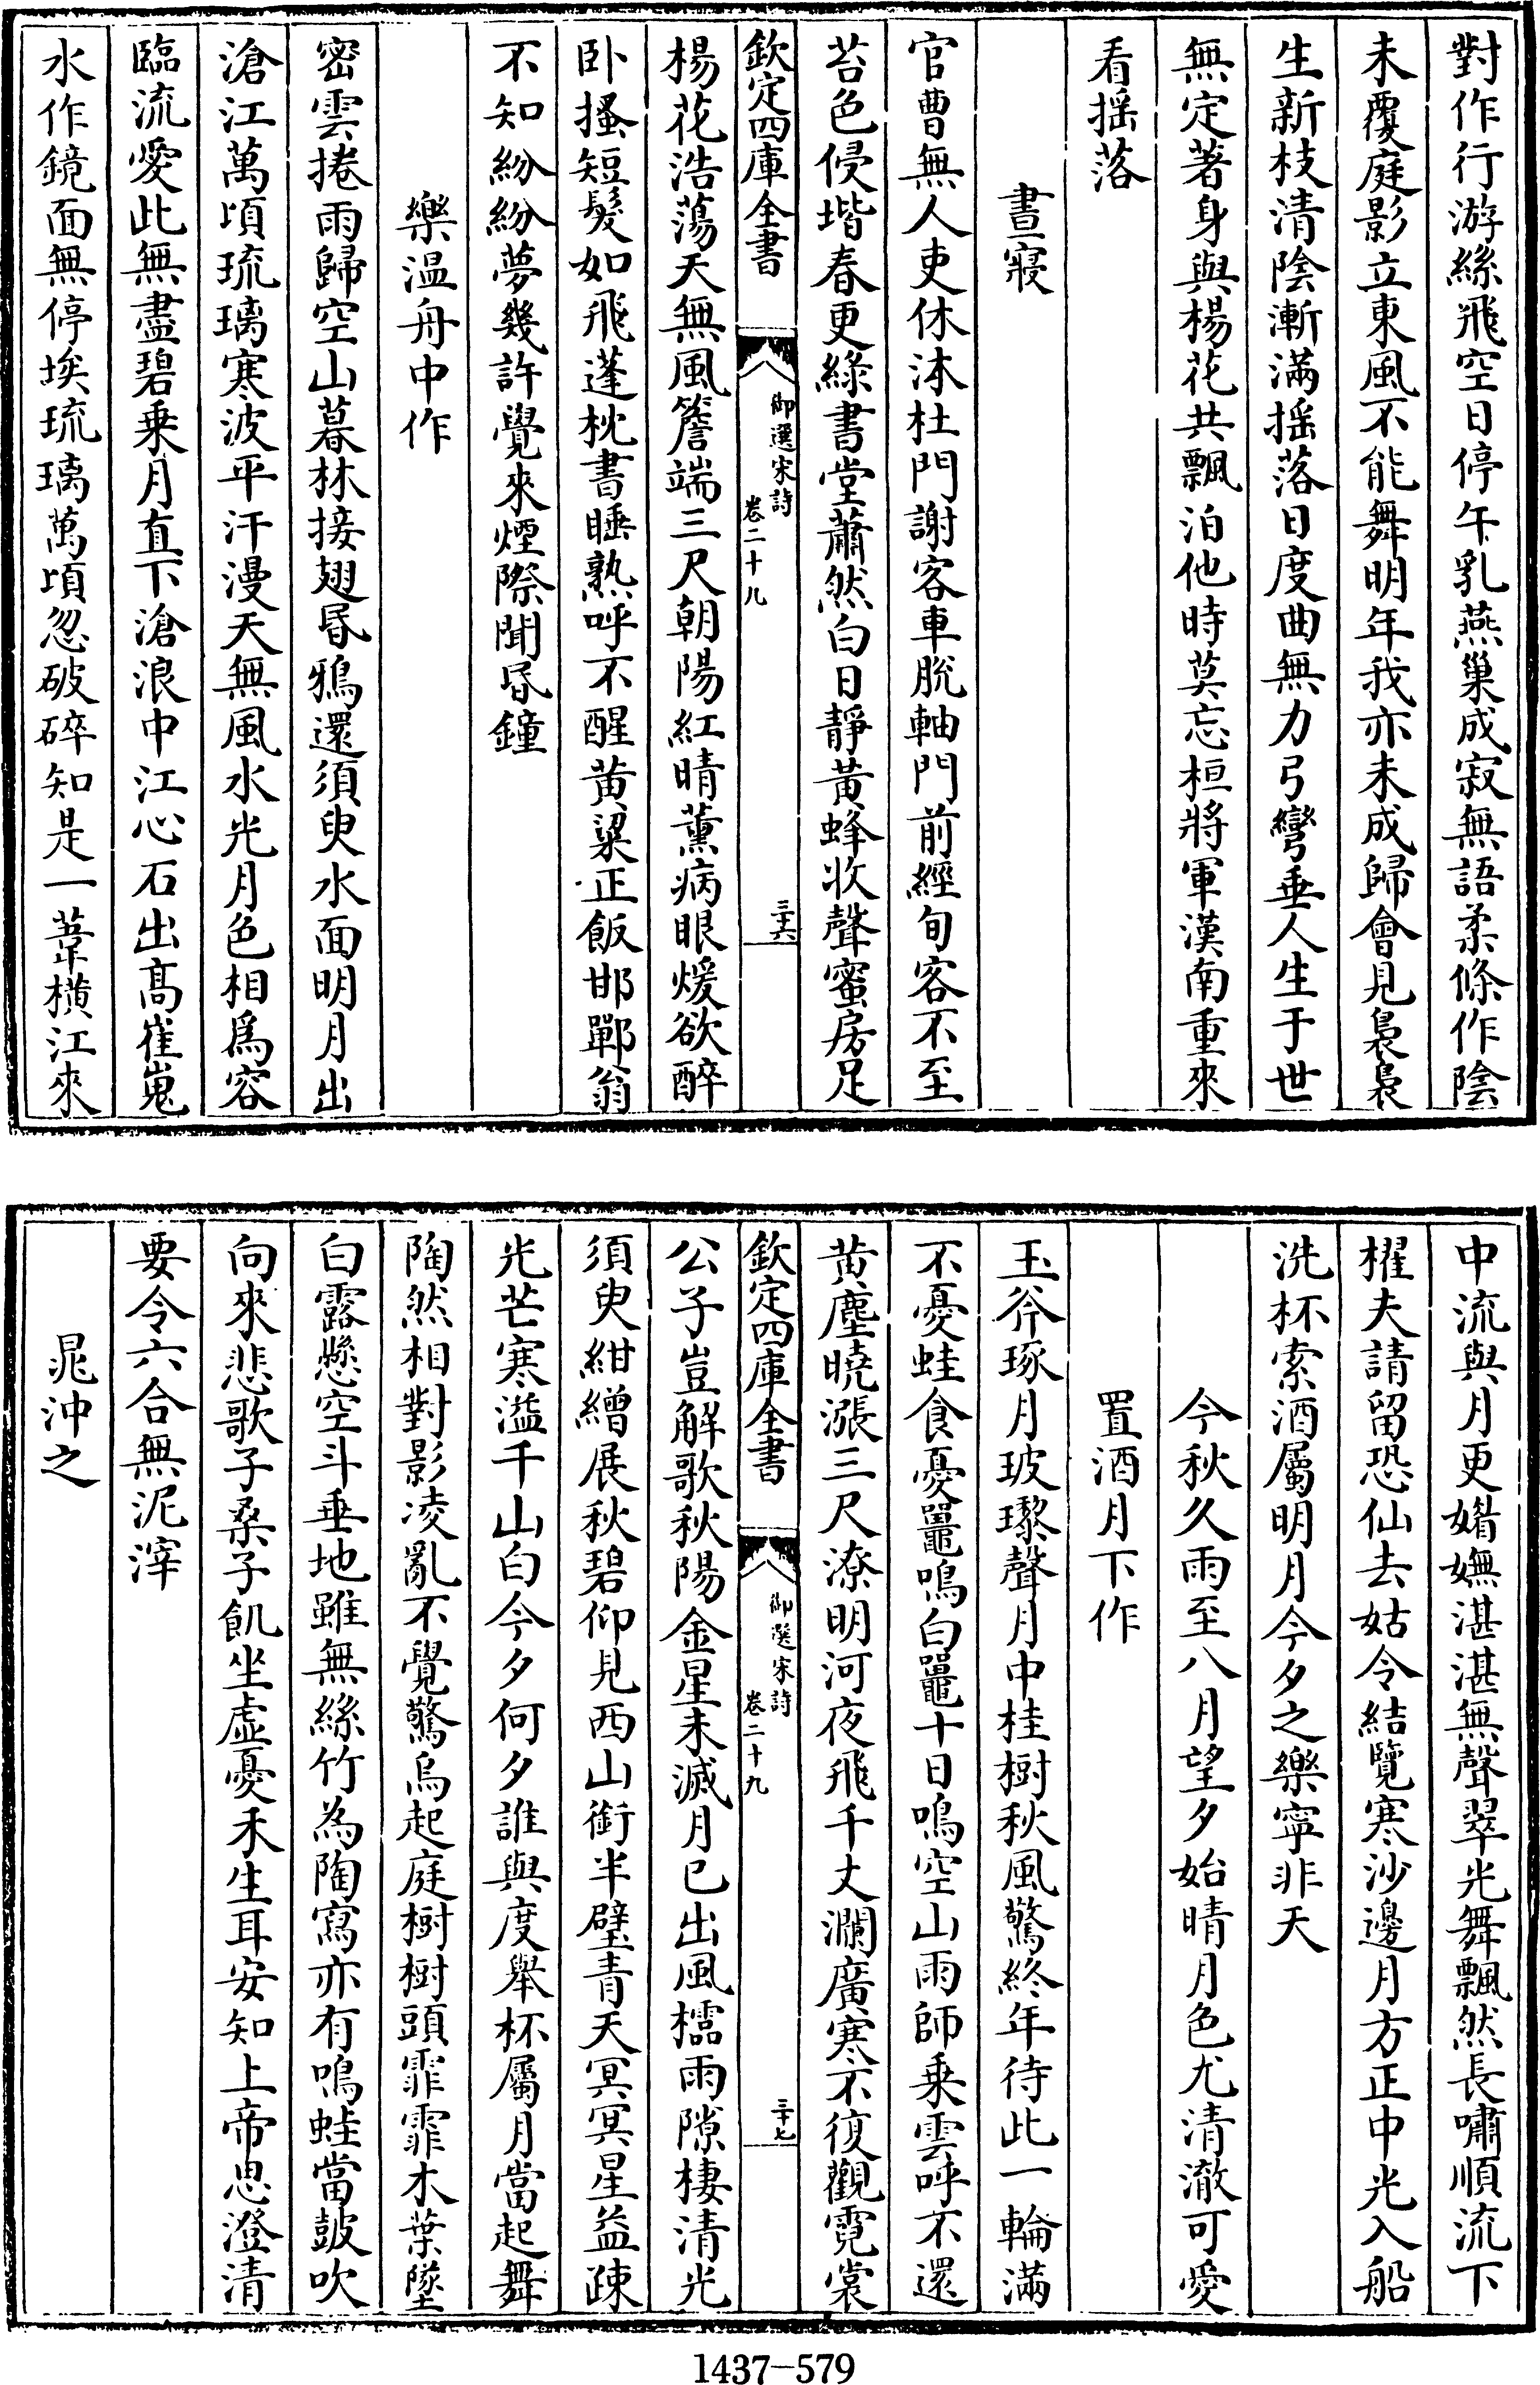 對作行游絲飛空日停午乳燕巢成寂無語柔條作陰
未覆庭影立東風不能舞明年我亦未成歸會見裊裊
生新枝清陰漸滿揺落日度曲無力弓彎垂人生于世
無定著身與楊花共飄泊他時莫忘桓將軍漢南重來
看揺落
晝寢
官曹無人吏休沐杜門謝客車脫軸門前經旬客不至
苔色侵堦春更綠書堂蕭然白日靜黃蜂收聲蜜房足
欽定四庫全書
御選宋詩
卷二十八
三十六
楊花浩蕩天無風簷端三尺朝陽紅晴薰病眼煖欲醉
卧搔短髮如飛蓬枕書睡熟呼不醒黃粱正飯邯鄲翁
不知紛紛夢幾許覺來煙際聞昬鐘
樂温舟中作
密雲捲雨歸空山暮林接翅昬鴉還須臾水面明月出
滄江萬頃琉璃寒波平汗漫天無風水光月色相爲容
臨流愛此無盡碧乗月直下滄浪中江心石出高崔嵬
水作鏡面無停埃琉璃萬頃忽破碎知是一葦橫江來
中流與月更媚嫵湛湛無聲翠光舞飄然長嘯順流下
櫂夫請留恐仙去姑令結纜寒沙邊月方正中光入船
洗杯索酒屬明月今夕之樂寧非天
今秋久雨至八月望夕始晴月色尤清澈可愛
置酒月下作
玉斧琢月玻瓈聲月中桂樹秋風驚終年待此一輪滿
不憂蛙食憂鼉鳴白鼉十日鳴空山雨師乗雲呼不還
黃塵曉漲三尺潦明河夜飛千丈瀾廣寒不復觀霓裳
欽定四庫全書
御選宋詩
卷二十九
三十七
公子豈解歌秋陽金星未滅月已出風櫺雨隙棲清光
須臾紺繒展秋碧仰見西山銜半璧青天冥冥星益疎
光芒寒溢千山白今夕何夕誰與度舉杯屬月當起舞
陶然相對影凌亂不覺驚烏起庭樹樹頭霏霏木葉墜
白露懸空斗垂地雖無絲竹為陶寫亦有鳴蛙當鼓吹
向來悲歌子桑子飢坐虛憂禾生耳安知上帝思澄清
要令六合無泥滓
晁沖之
1437-579